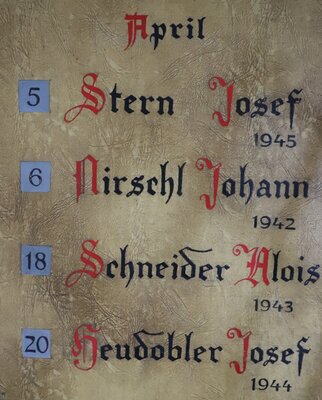 April
5 Stern Josef
1945
6 Nirschl Johann
1942
18 Schneider Alois
1943
20 Heudobler Josef
1944